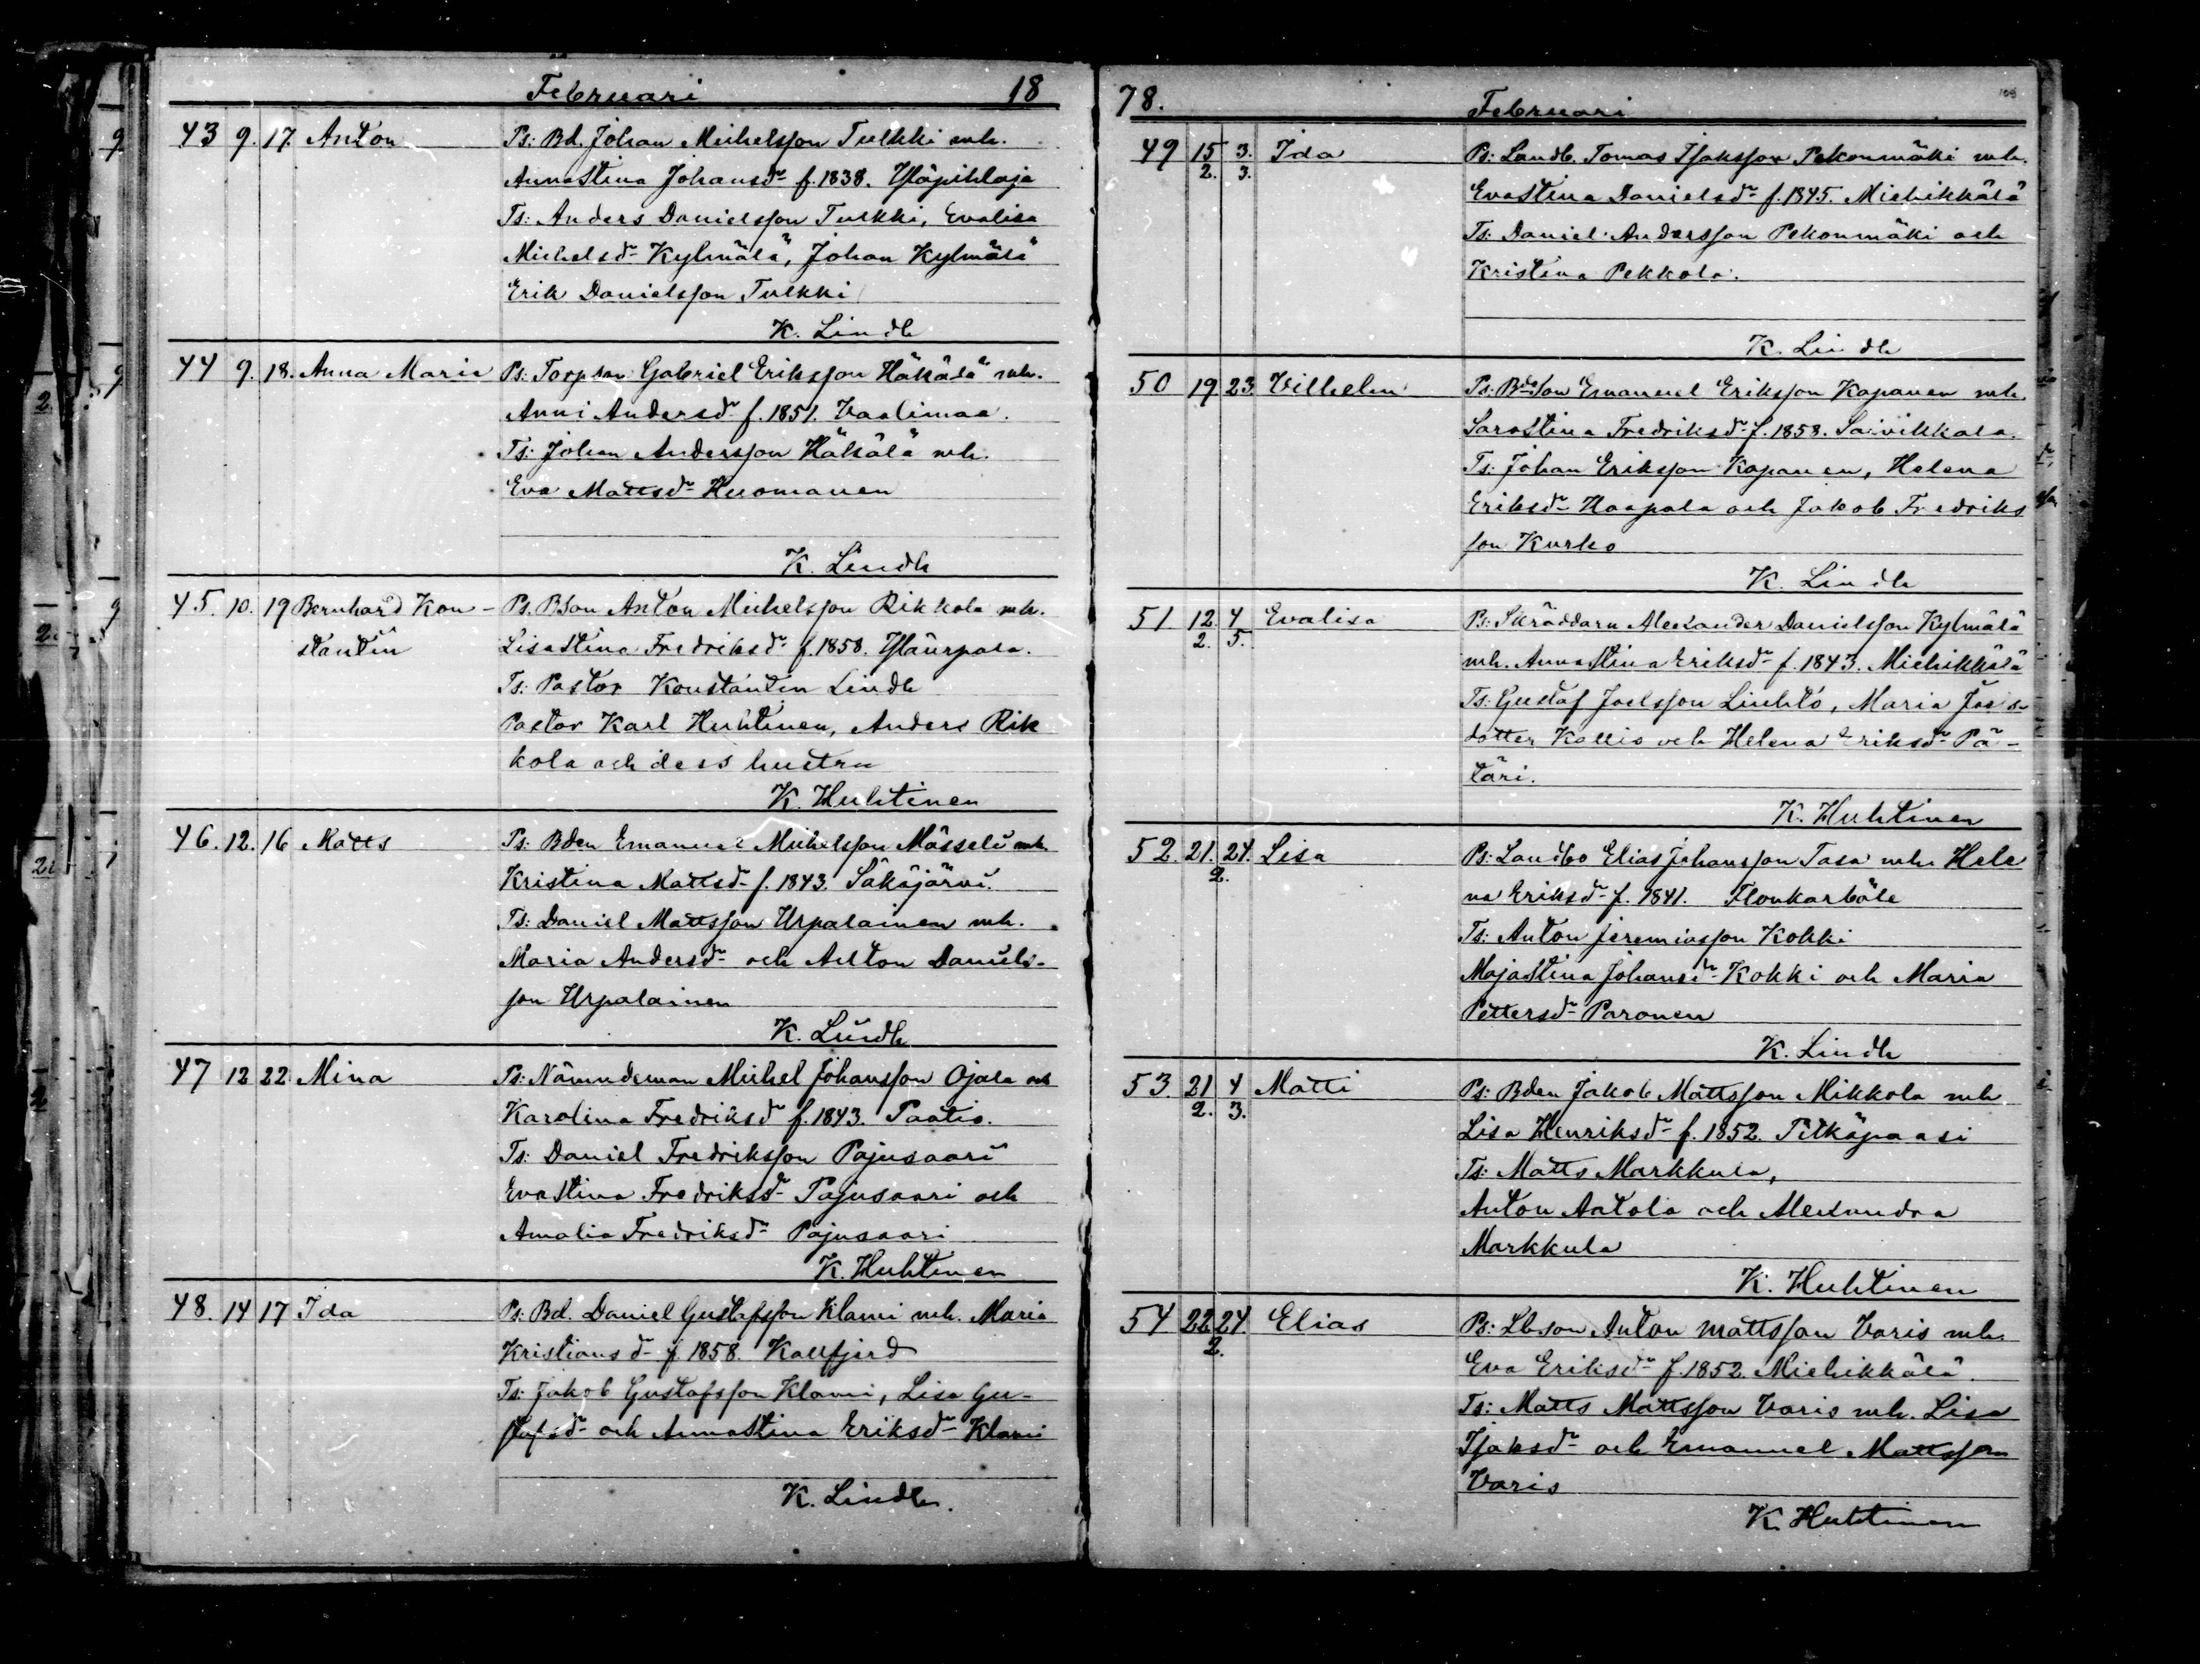 Februari 18
43 9. 17. Anton Ps: Bd. Johan Michelsson Tulkki mh.
Annastina Johansdr f. 1838. Yläpihlaja
Ts: Anders Danielsson Tulkki, Evalisa
Michelsdr Kylmälä, Johan Kylmälä
Erik Danielsson Tulkki
K. Lindh
44 9. 18. Anna Maria Ps: Torpare Gabriel Eriksson Häkälä mh.
Anni Andersdr f. 1851. Vaalimaa.
Ts: Johan Andersson Häkälä mh.
Eva Mattsdr Huomanen
K. Lindh
45. 10. 19 Bernhard Kon- Ps. Bson Anton Michelsson Rikkola mh.
stantin Lisastina Fredriksdr f. 1858. Yläurpala.
Ts: Pastor Konstantin Lindh
Pastor Karl Huhtinen, Anders Rik
kola och dess hustru
K. Huhtinen
46. 12. 16 Matts Ps: Bden Emanuel Michelsson Mässeli mh.
Kristina Mattsdr f. 1843. Säkäjärvi.
Ts: Daniel Mattsson Urpalainen mh.
Maria Andersdr och Anton Daniels-
son Urpalainen
K. Lindh
47 12 22 Mina Ps: Nämndeman Michel Johansson Ojala och
Karolina Fredriksdr f. 1843. Paatio.
Ts: Daniel Fredriksson Pajusaari
Evastina Fredriksdr Pajusaari och
Amalia Fredriksdr Pajusaari
K. Huhtinen
48. 14 17 Ida Ps: Bd. Daniel Gustafsson Klami mh. Maria
Kristiansdr f. 1858. Kallfjerd
Ts: Jakob Gustafsson Klami, Lisa Gu-
stafsdr och Annastina Eriksdr Klami
K. Lindh.
78.
Februari
49 15/2. 3./3. Ida Ps: Landb. Tomas Isaksson Pekonmäki mh.
Evastina Danielsdr f. 1845. Miehikkälä
Ts: Daniel Andersson Pekonmäki och
Kristina Pekkola.
K. Lindh
50 19. 23. Vilhelm Ps: Bdeson Emanuel Eriksson Kapanen mh.
Sarastina Fredriksdr f. 1858. Saivikkala.
Ts: Johan Eriksson Kapanen, Helena
Eriksdr Haapala och Jakob Fredriks
son Kurko
K. Lindh
51 12./2. 4/5. Evalisa Ps: Skräddarn Alexander Danielsson Kylmälä
mh. Annastina Eriksdr f. 1843. Miehikkälä
Ts: Gustaf Joelsson Liuhto, Maria Joels-
dotter Kallio och Helena Eriksdr Pä-
täri.
K. Huhtinen
52. 21. 24./2. Lisa Ps: Landbo Elias Johansson Tasa mh. Hele
na Eriksdr f. 1841. Flonkarböle
Ts: Anton Jeremiasson Kokki
Majastina Johansdr Kokki och Maria
Pettersdr Paronen
K. Lindh
53. 21/2. 4/3. Matti Ps: Bden Jakob Mattsson Mikkola mh
Lisa Henriksdr f. 1852. Pitkäpaasi
Ts: Matts Markkula,
Anton Aatola och Alexandra
Markkula
K. Huhtinen
54 22 24./2. Elias Ps: Lbson Anton Mattsson Varis mh.
Eva Eriksdr f. 1852. Miehikkälä.
Ts: Matts Mattsson Varis mh. Lisa
Isaksdr och Emanuel Mattsson
Varis
K. Huhtinen